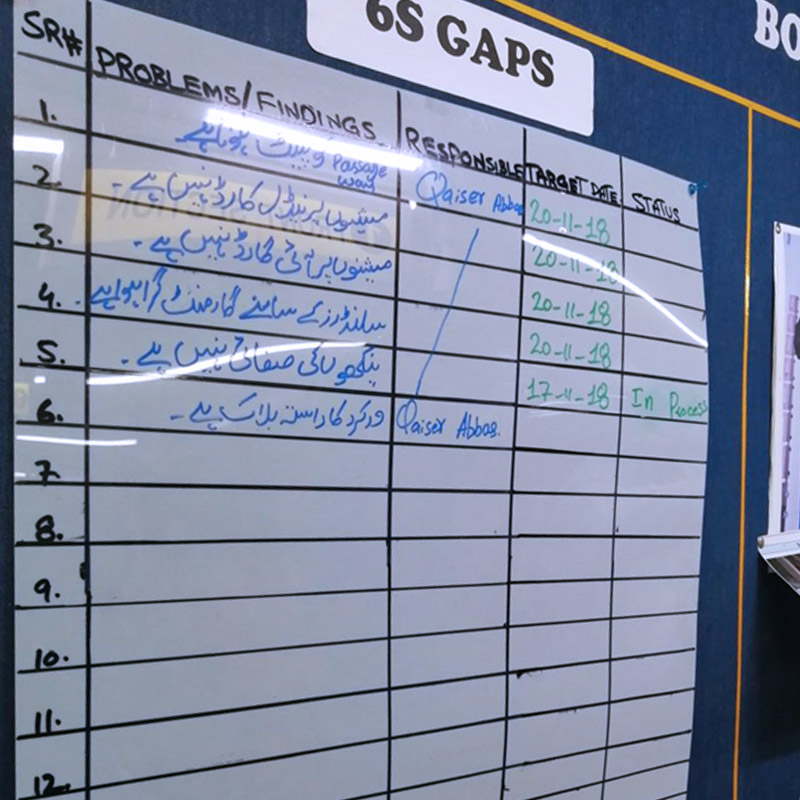 6S GAPS
BO
SR# PROBLEMS/FINDINGS RESPONSIBLE TARGET DATE STATUS
1. Passage way پینٹ ہونا ہے Qaiser Abbas 20-11-18
2. مشینوں پر نیڈل گارڈ نہیں ہے۔ 20-11-18
3. مشینوں پر آئی گارڈ نہیں ہے۔ 20-11-18
4. سلنڈرز کے سامنے گارمنٹ گرا ہوا ہے۔ 20-11-18
5. پنکھوں کی صفائی نہیں ہے۔ 17-11-18 In Process
6. ورکرد کا راستہ بلاک ہے۔ Qaiser Abbas.
7.
8.
9.
10.
11.
12.